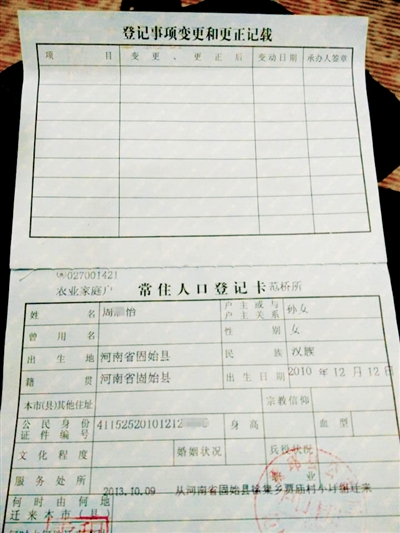 登记事项变更和更正记载
项 目 变 更 、 更 正 后 变动日期 承办人签章
027001421
农业家庭户 常住人口登记卡 范桥所
姓 名 周 怡 户主或与户主关系 孙女
曾 用 名 性 别 女
出 生 地 河南省固始县 民 族 汉族
籍 贯 河南省固始县 出 生 日 期 2010 年 12 月 12 日
本市(县)其他住址 宗教信仰
公民身份证件编号 41152520101212 身 高 血 型
文 化 程 度 婚姻状况 兵役状况
服 务 处 所 职 业
何时由何地迁来本市(县) 2013.10.09 从河南省固始县徐集乡 庙村 迁来